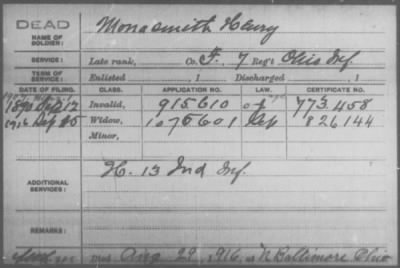 DEAD
NAME OF SOLDIER: Monasmith Henry
SERVICE: Late rank, Co. F, 7 Reg't Ohio Inf.
TERM OF SERVICE: Enlisted , 1 Discharged , 1
DATE OF FILING. CLASS. APPLICATION NO. LAW. CERTIFICATE NO.
1890 12 Invalid, 915610 773.458
1916 Sep 5 Widow, 1075601 826144
Minor,
ADDITIONAL SERVICES: H. 13 Ind Inf.
REMARKS:
died Aug 29, 1916, at N Baltimore Ohio